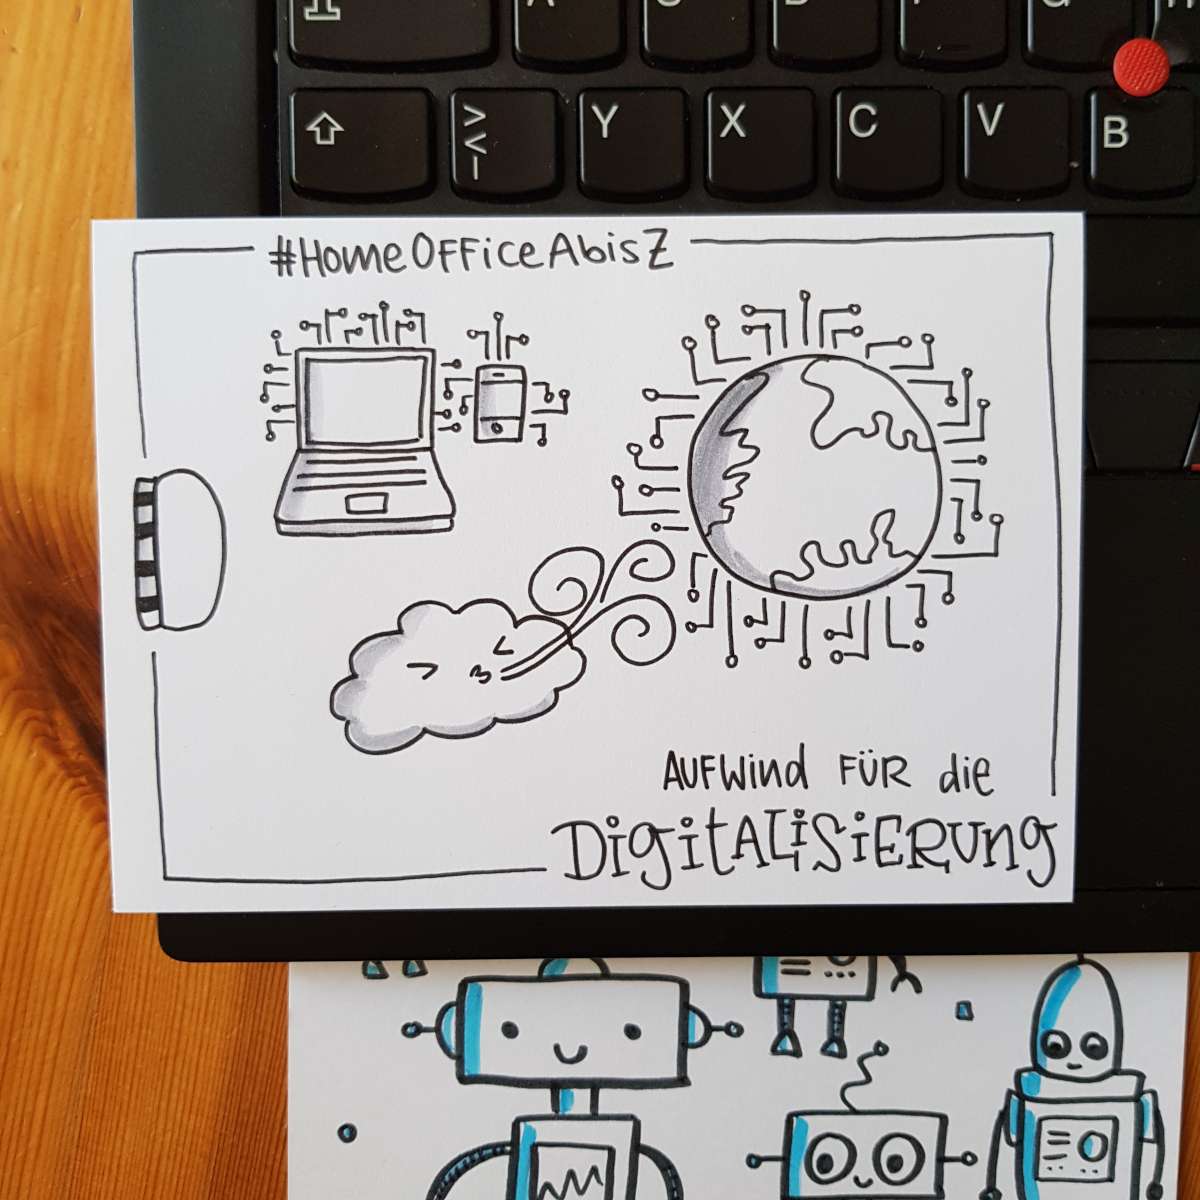 Y X C V B
> < |
#HomeOfficeAbisZ
Aufwind für die
Digitalisierung